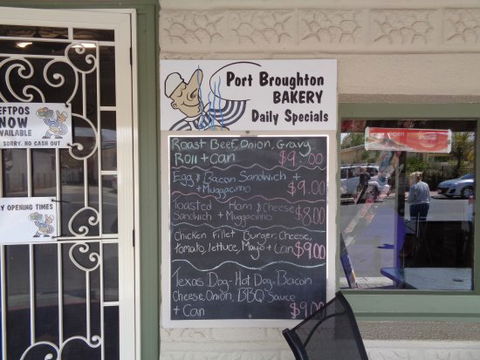 EFTPOS
NOW
AVAILABLE
SORRY, NO CASH OUT
Y OPENING TIMES
Port Broughton
BAKERY
Daily Specials
Roast Beef, Onion, Gravy
Roll + Can $9.00
Egg & Bacon Sandwich +
+ Muggaccino $9.00
Toasted Ham & Cheese
Sandwich + Muggaccino $8.00
Chicken Fillet Burger, Cheese,
Tomato, lettuce, Mayo + Can $9.00
Texas Dog - Hot Dog, Bacon
Cheese, Onion, BBQ Sauce
+ Can $9.00